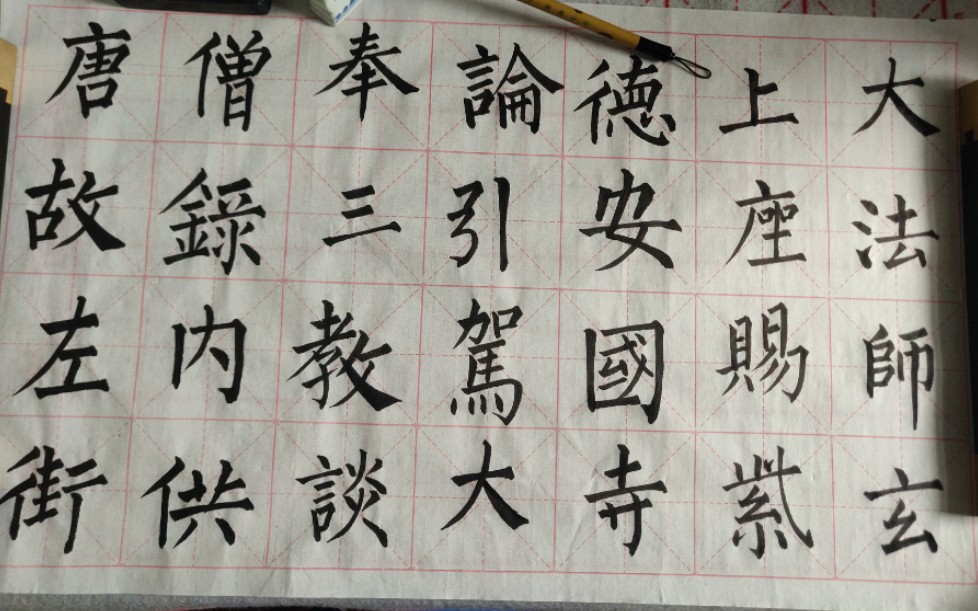 唐故左街
僧錄内供
奉三教談
論引駕大
德安國寺
上座賜紫
大法師玄